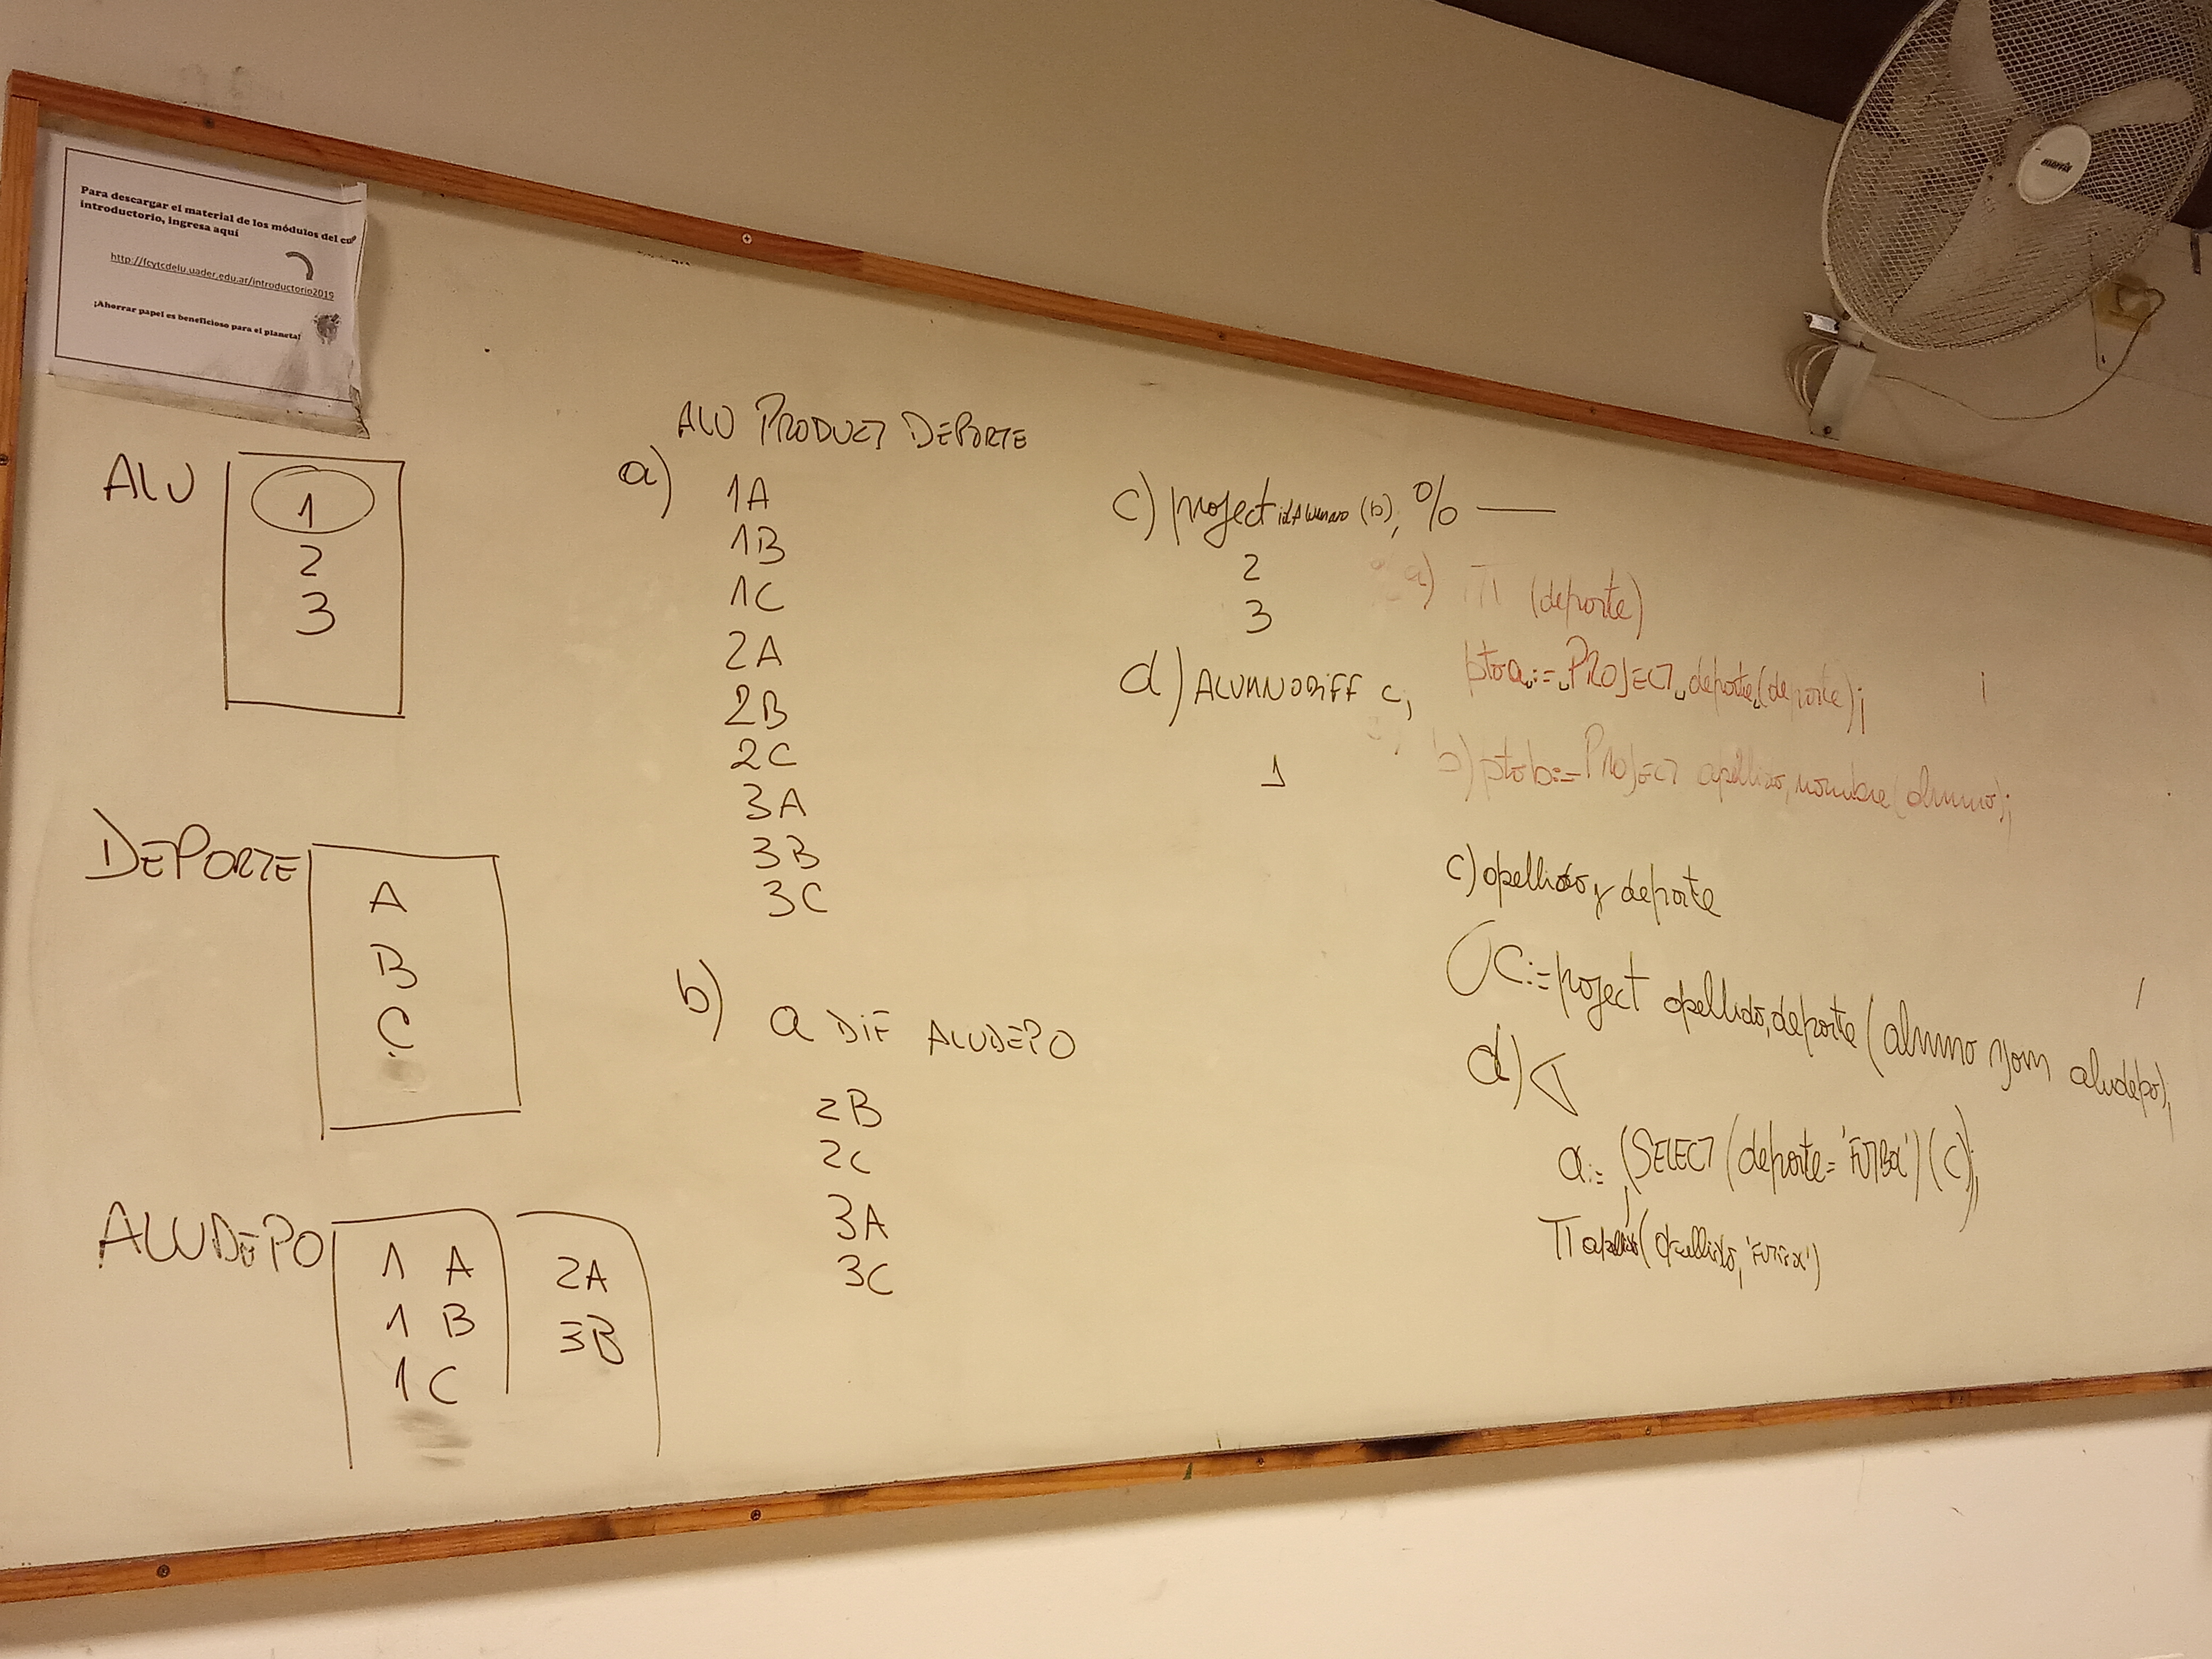 Para descargar el material de los módulos del
introductorio, ingresa aquí
http://fcytcdelu.uader.edu.ar/introductorio2019
¡Ahorrar papel es beneficioso para el planeta!
ALU
1
2
3
DEPORTE
A
B
C
ALUDEPO
1 A
1 B
1 C
2A
3B
ALU PRODUCT DEPORTE
a)
1A
1B
1C
2A
2B
2C
3A
3B
3C
b) a DIF ALUDEPO
2B
2C
3A
3C
c) project idAlumno (b); %
2
3
d) ALUMNO DIFF c;
1
a) π (deporte)
ptoa:= PROJECT deporte (deporte);
b) ptob:= PROJECT apellido, nombre (alumno);
c) apellido y deporte
C:= project apellido, deporte (alumno njoin aludepo);
d)
a:= (SELECT (deporte='FUTBOL') (C);
π apellido (apellido, 'FUTBOL')